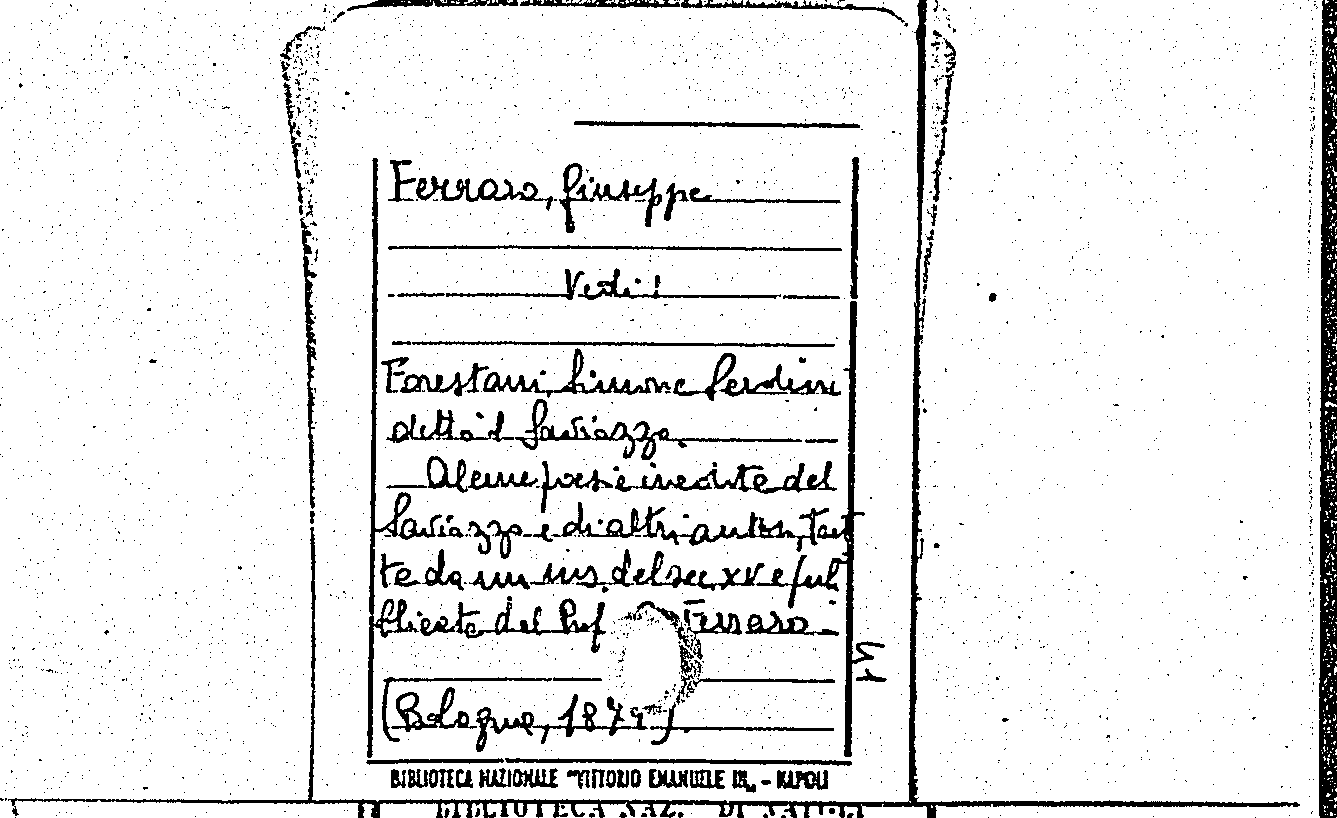 Ferraro, Giuseppe
Vedi!
Forestani, Simone Serdini
detto il Saviozzo.
Alcune poesie inedite del
Saviozzo e di altri autori, trat
te da un ms. del sec. XV e pub
blicate dal Prof. Ferraro.
(Bologna, 1879).
BIBLIOTECA NAZIONALE "VITTORIO EMANUELE III„ - NAPOLI
BIBLIOTECA NAZ. DI NAPOLI